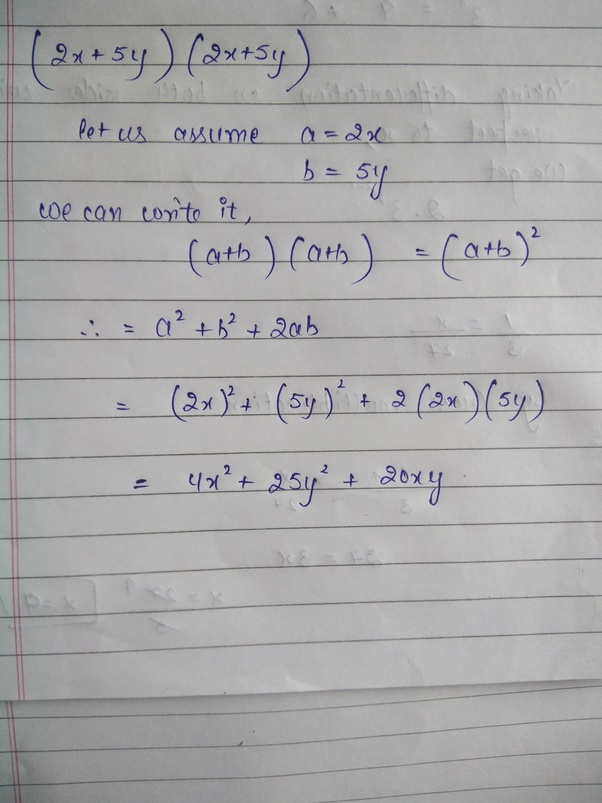 (2x + 5y) (2x+5y)
let us assume a = 2x
b = 5y
we can write it,
(a+b) (a+b) = (a+b)²
∴ = a² + b² + 2ab
= (2x)² + (5y)² + 2 (2x) (5y)
= 4x² + 25y² + 20xy